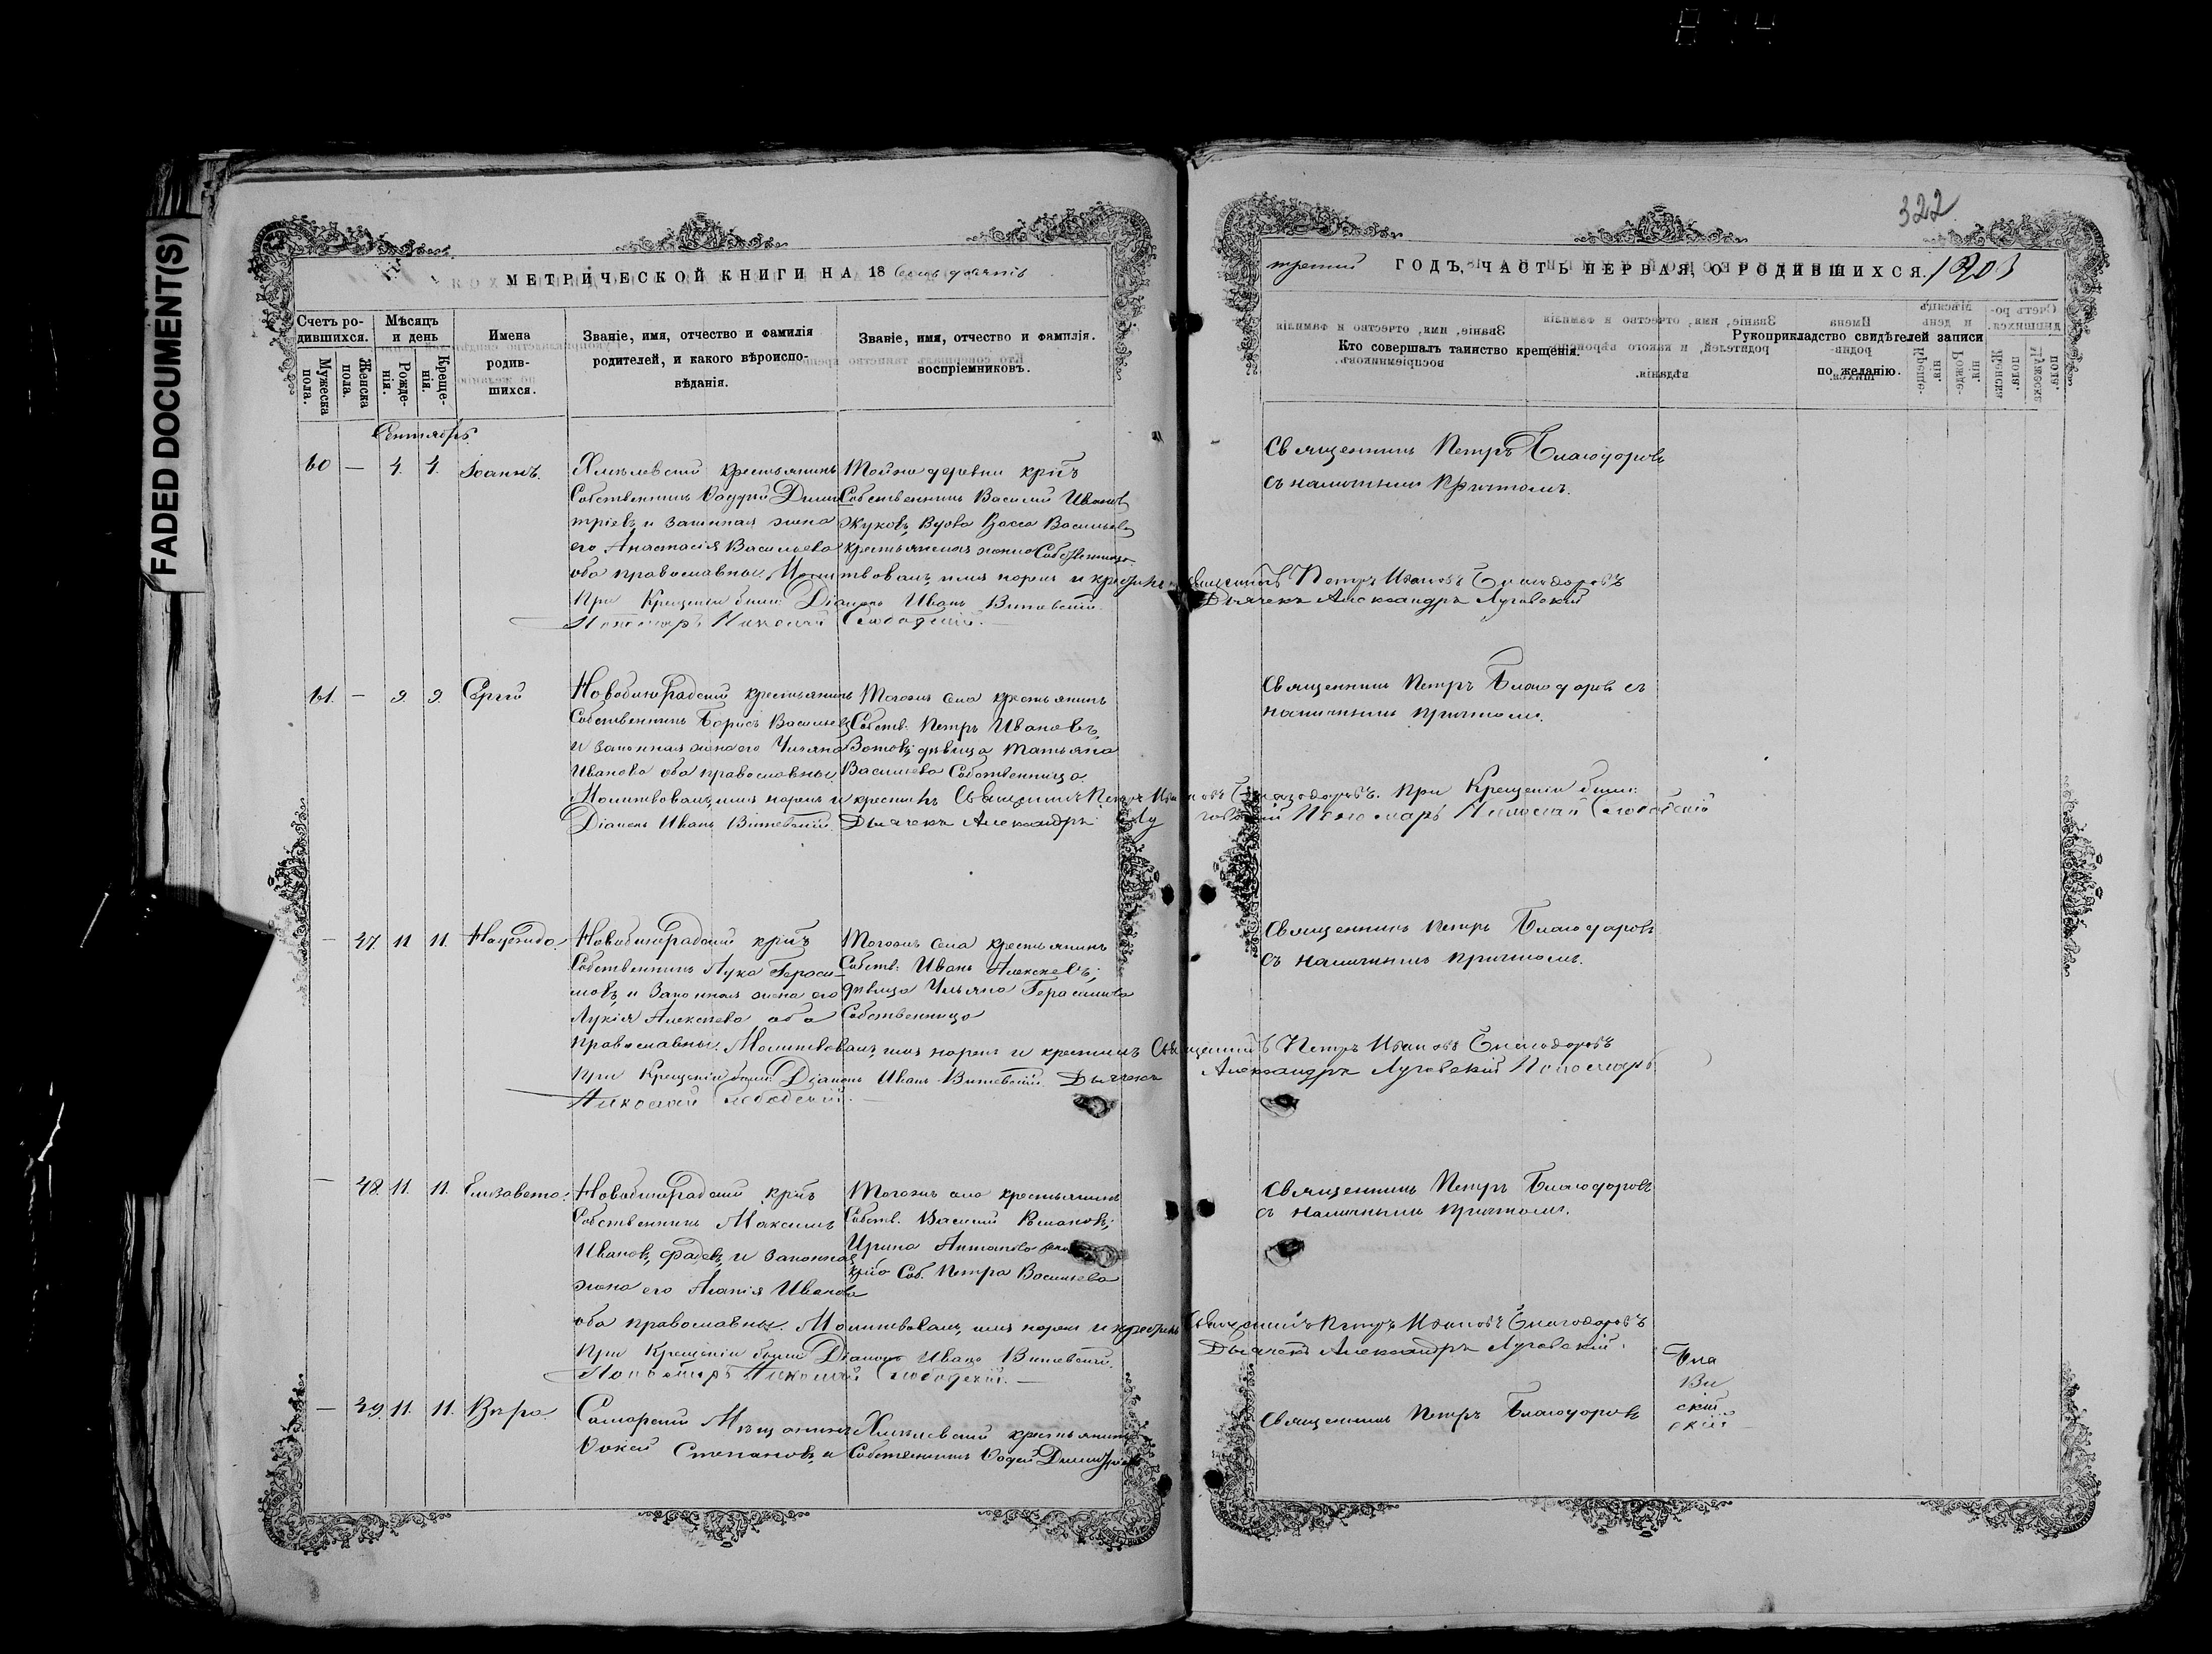 FADED DOCUMENT(S)
322
МЕТРИЧЕСКОЙ КНИГИ НА 18 семьдесятъ
третий ГОДЪ, ЧАСТЬ ПЕРВАЯ, О РОДИВШИХСЯ.
Счетъ родившихся.
Мужеска пола.
Женска пола.
Мѣсяцъ и день
Рожденія.
Крещенія.
Имена родившихся.
Званіе, имя, отчество и фамилія
родителей, и какого вѣроиспо-
вѣданія.
Званіе, имя, отчество и фамилія.
воспріемниковъ.
Кто совершалъ таинство крещенія.
Рукоприкладство свидѣтелей записи
по желанію.
Сентябрь
60 — 4. 4. Іоаннъ.
Хмѣлевскій крестьянинъ
Собственникъ Фаддей Дими
тріевъ и законная жена
его Анастасія Васильева
оба православны. Молитвовалъ, имя нарекъ и крестилъ Священникъ Петръ Ивановъ Благодаровъ
При Крещеніи были: Діаконъ Иванъ Витевскій. Дьячекъ Александръ Луговский
Пономарь Николай Слободскій.
Тойже деревни кр
Собственникъ Василій Ивановъ
Жуковъ, Вдова Васса Васильева
крестьянская жена Собственница
Священникъ Петръ Благодаровъ
съ наличнымъ причтомъ.
61. — 9. 9. Сергій
Новобиноградскій крестьянинъ
Собственникъ Борисъ Васильевъ
и законная жена его Ульяна
Иванова оба православны.
Тогожъ села крестьянинъ
Собств: Петръ Ивановъ
Зотовъ; дѣвица Татьяна
Васильева Собственница
Молитвовалъ, имя нарекъ и крестилъ Священникъ Петръ Ивановъ Благодаровъ. При Крещеніи были:
Діаконъ Иванъ Витевскій. Дьячекъ Александръ Луговский Пономарь Николай Слободскій
Священникъ Петръ Благодаровъ съ
наличнымъ причтомъ.
— 47. 11 11. Надежда.
Новобиноградскій кр
Собственникъ Лука Гераси-
мовъ, и Законная жена его
Лукія Алексѣева оба
православны. Молитвовалъ, имя нарекъ и крестилъ Священникъ Петръ Ивановъ Благодаровъ
При Крещеніи были: Діаконъ Иванъ Витевскій. Дьячекъ Александръ Луговскій Пономарь
Николай Слободскій.
Тогожъ села крестьянинъ
Собств: Иванъ Алексѣевъ;
дѣвица Ульяна Герасимова
Собственница
Священникъ Петръ Благодаровъ
съ наличнымъ причтомъ.
— 48. 11. 11. Елизавета.
Новобиноградскій кр
Собственникъ Максимъ
Ивановъ, и Законная
жена его Агапія Иванова
оба православны. Молитвовалъ, имя нарекъ и крестилъ Священникъ Петръ Ивановъ Благодаровъ
При Крещеніи были Діаконъ Иванъ Витевскій. Дьячекъ Александръ Луговскій.
Пономарь Николай Слободскій. —
Тогожъ села крестьянинъ
Собств. Василій
Ирина
Соб. Петра Васильева
Священникъ Петръ Благодаровъ
съ наличнымъ причтомъ.
— 49. 11. 11. Вѣра.
Самарскій Мѣщанинъ
Фокай Степановъ и
Хмѣлевскій крестьянинъ
Собственникъ Фадей Димитріевъ
Священникъ Петръ Благодаровъ
Бла
Ви
скій
скій